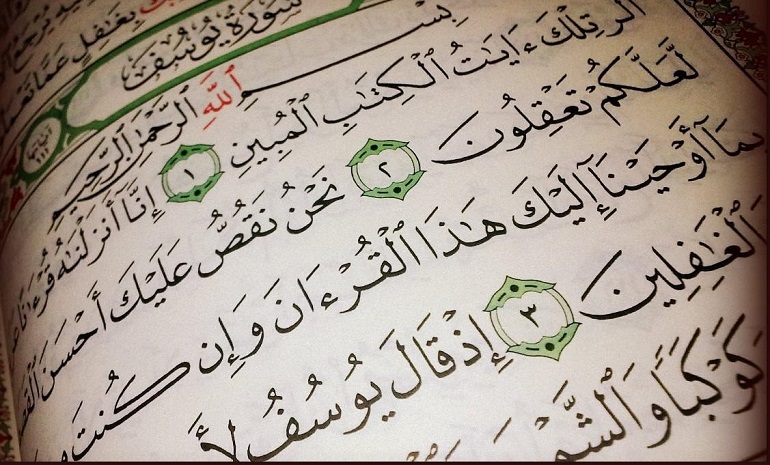 بِغَٰفِلٍ عَمَّا
سُورَةُ يُوسُفَ
بِسْمِ ٱللَّهِ ٱلرَّحْمَٰنِ ٱلرَّحِيمِ
الٓر تِلْكَ ءَايَٰتُ ٱلْكِتَٰبِ ٱلْمُبِينِ ١ إِنَّآ أَنزَلْنَٰهُ قُرْءَٰنًا
لَّعَلَّكُمْ تَعْقِلُونَ ٢ نَحْنُ نَقُصُّ عَلَيْكَ أَحْسَنَ
بِمَآ أَوْحَيْنَآ إِلَيْكَ هَٰذَا ٱلْقُرْءَانَ وَإِن كُنتَ
ٱلْغَٰفِلِينَ ٣ إِذْ قَالَ يُوسُفُ
كَوْكَبًا وَٱلشَّمْ